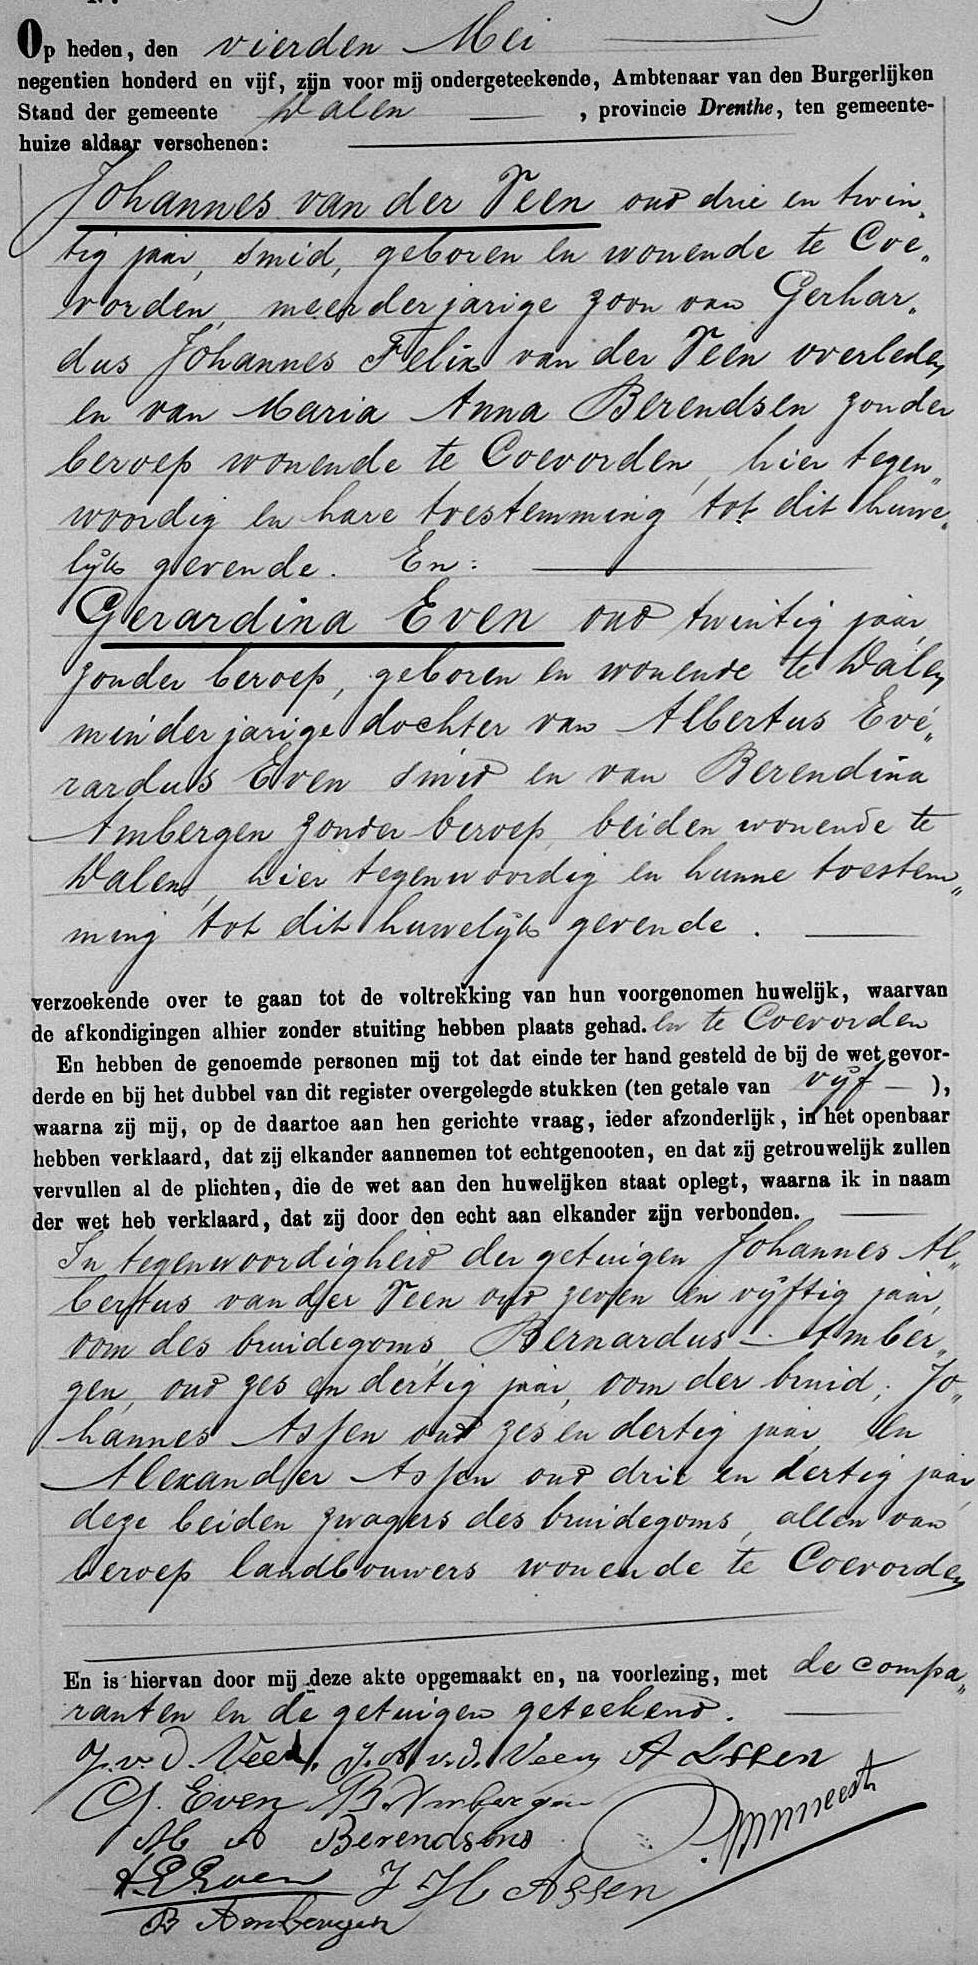 Op heden, den vierden Mei
negentien honderd en vijf, zijn voor mij ondergeteekende, Ambtenaar van den Burgerlijken
Stand der gemeente Dalen, provincie Drenthe, ten gemeente-
huize aldaar verschenen:
Johannes van der Veen oud drie en twin„
tig jaar, smid, geboren en wonende te Coe„
vorden, meerderjarige zoon van Gerhar„
dus Johannes Felix van der Veen overleden
en van Maria Anna Berendsen zonder
beroep wonende te Coevorden, hier tegen„
woordig en hare toestemming tot dit huwe„
lijk gevende. En:
Gerardina Even oud twintig jaar,
zonder beroep, geboren en wonende te Dalen
minderjarige dochter van Albertus Eve„
rardus Even smid en van Berendina
Ambergen zonder beroep, beiden wonende te
Dalen, hier tegenwoordig en hunne toestem„
ming tot dit huwelijk gevende.
verzoekende over te gaan tot de voltrekking van hun voorgenomen huwelijk, waarvan
de afkondigingen alhier zonder stuiting hebben plaats gehad. en te Coevorden
En hebben de genoemde personen mij tot dat einde ter hand gesteld de bij de wet gevor-
derde en bij het dubbel van dit register overgelegde stukken (ten getale van vijf),
waarna zij mij, op de daartoe aan hen gerichte vraag, ieder afzonderlijk, in het openbaar
hebben verklaard, dat zij elkander aannemen tot echtgenooten, en dat zij getrouwelijk zullen
vervullen al de plichten, die de wet aan den huwelijken staat oplegt, waarna ik in naam
der wet heb verklaard, dat zij door den echt aan elkander zijn verbonden.
In tegenwoordigheid der getuigen Johannes Al„
bertus van der Veen oud zeven en vijftig jaar,
oom des bruidegoms, Bernardus Amber„
gen, oud zes en dertig jaar, oom der bruid, Jo„
hannes Assen oud zes en dertig jaar, en
Alexander Assen oud drie en dertig jaar,
deze beiden zwagers des bruidegoms, allen van
beroep landbouwers wonende te Coevorden
En is hiervan door mij deze akte opgemaakt en, na voorlezing, met de compa„
ranten en de getuigen geteekend.
J. v. d. Veen. J. A. v. d. Veen A Assen
G. Even B. Ambergen
M A Berendsen
A. E. Even J H Assen
B Ambergen